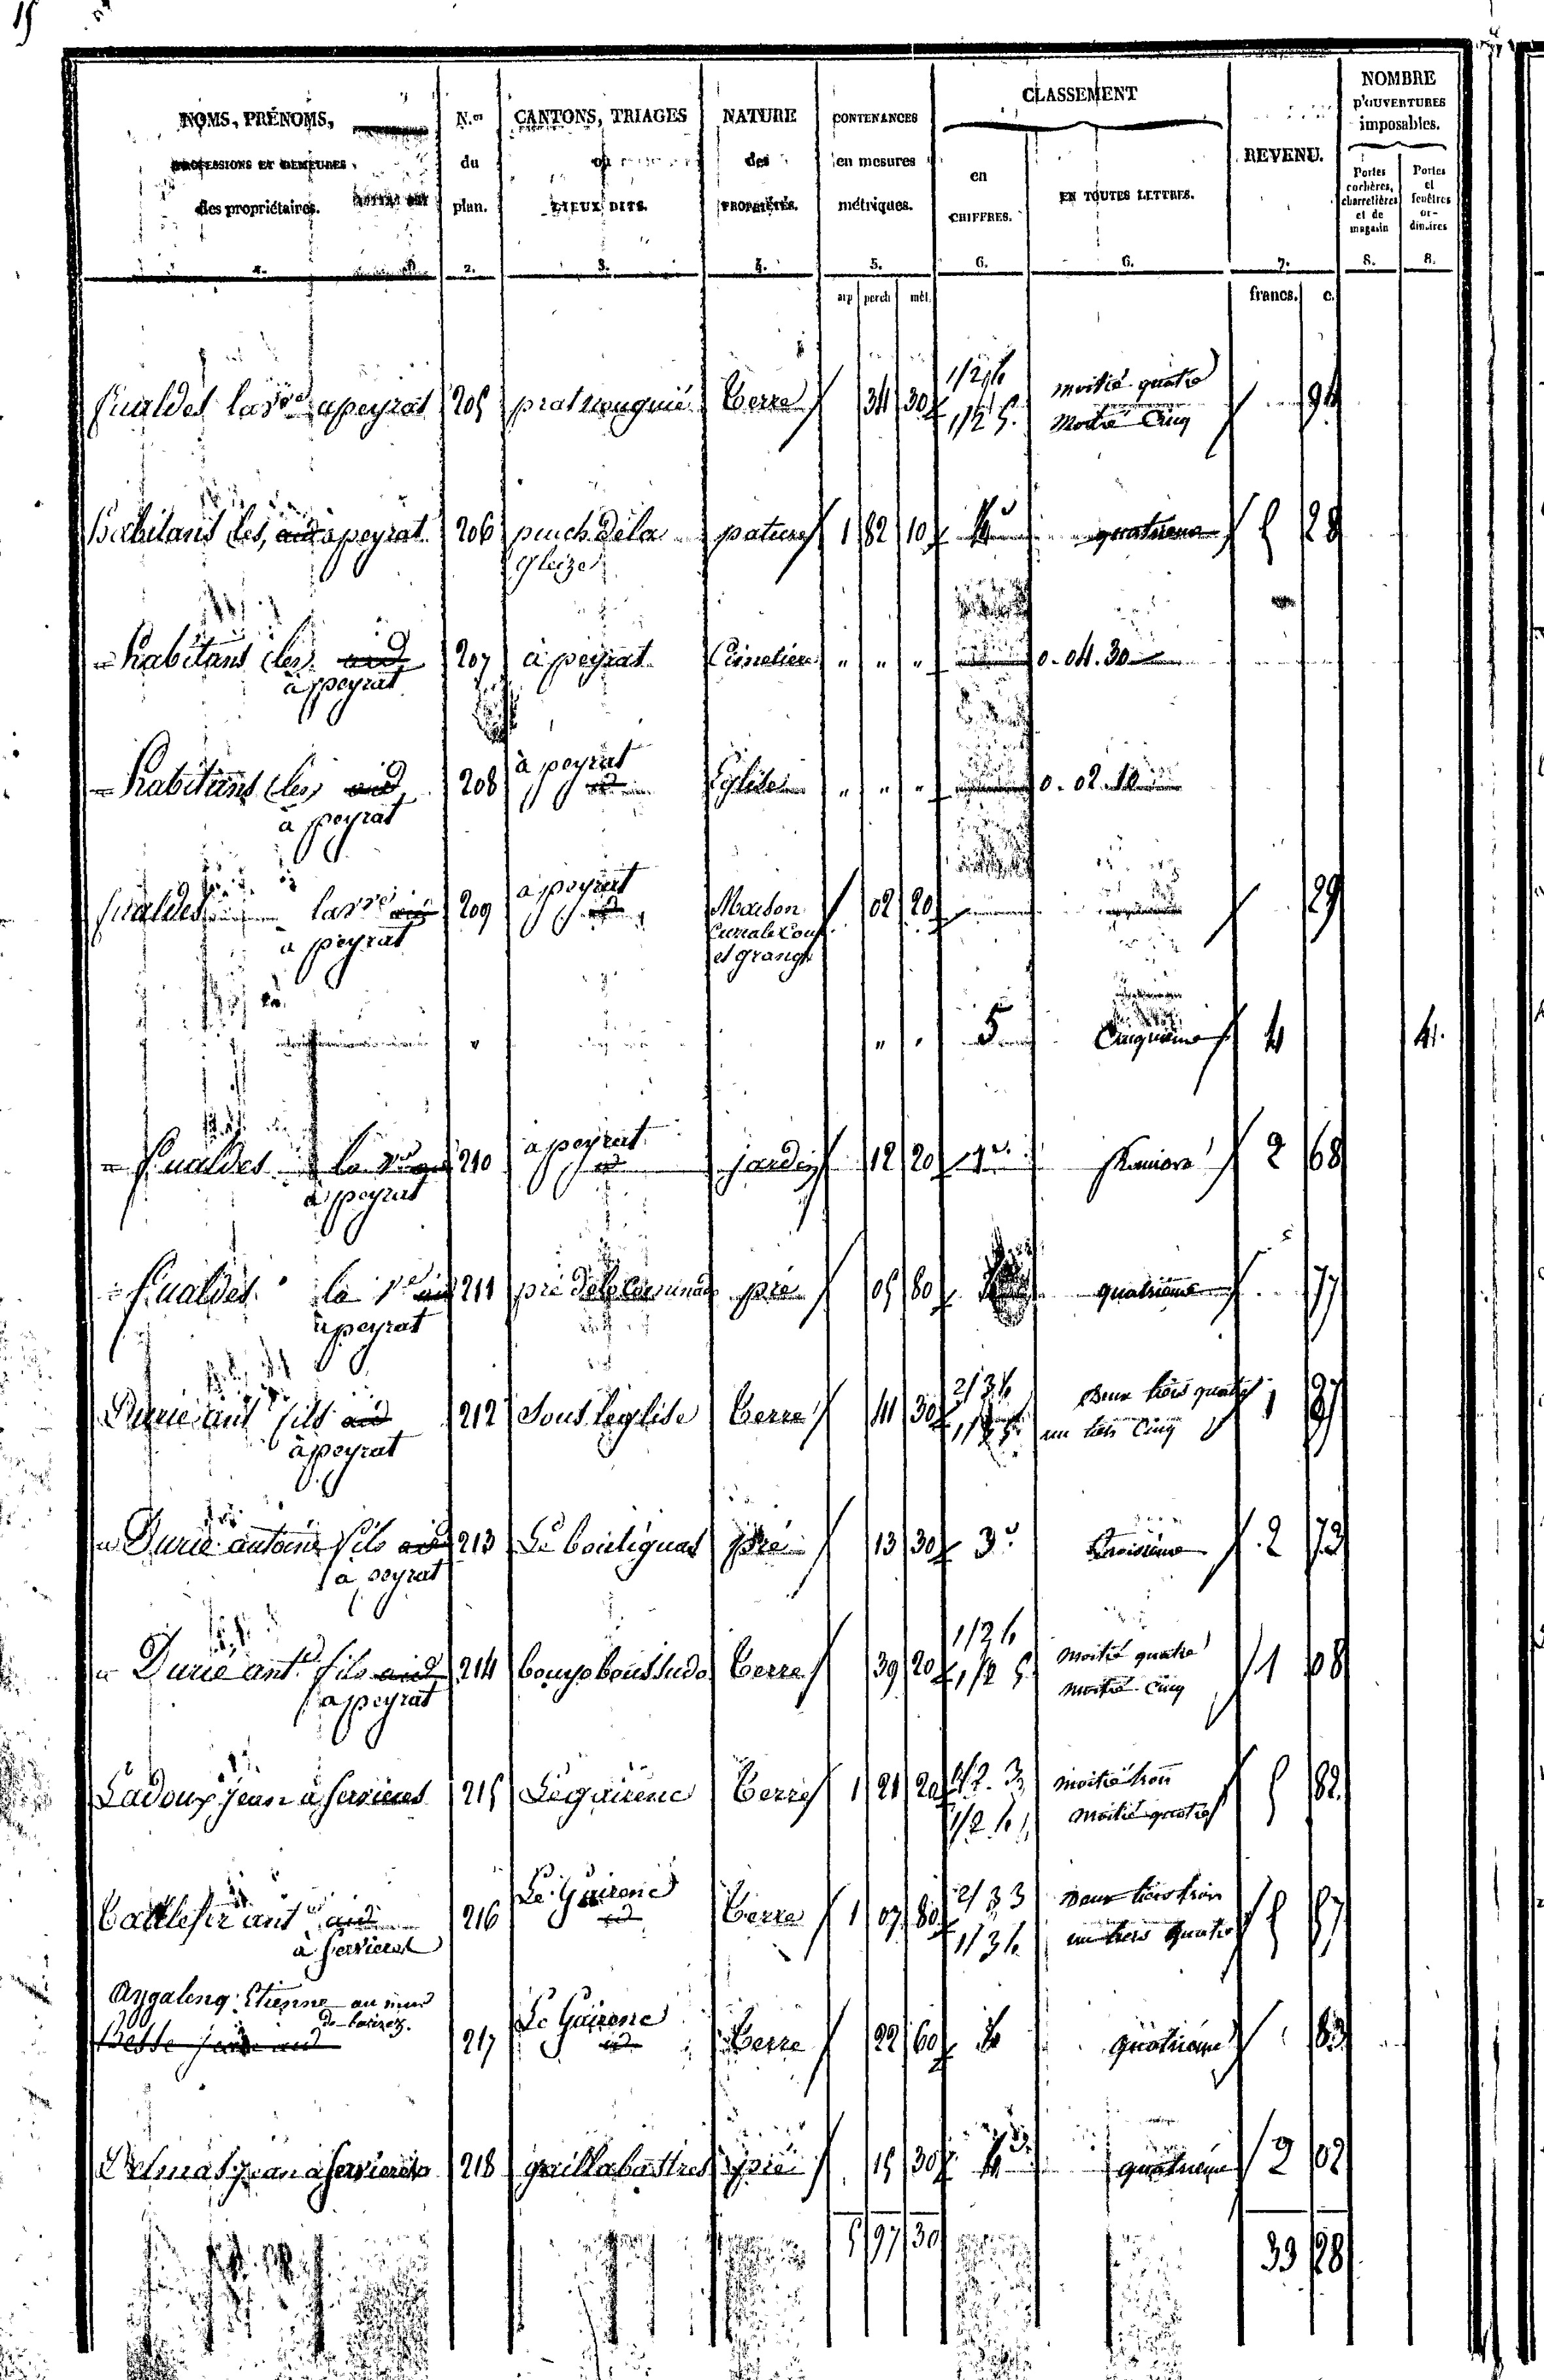 15
NOMS, PRÉNOMS,
PROFESSIONS ET DEMEURES
des propriétaires.
1.
N.os
du
plan.
2.
CANTONS, TRIAGES
ou
LIEUX DITS.
3.
NATURE
des
PROPRIÉTÉS.
4.
CONTENANCES
en mesures
métriques.
5.
CLASSEMENT
en
CHIFFRES.
6.
EN TOUTES LETTRES.
6.
REVENU.
7.
NOMBRE
D'OUVERTURES
imposables.
Portes
cochères,
charretières
et de
magasin
8.
Portes
et
fenêtres
or-
dinaires
8.
arp perch mèt. francs. c.
fualdes la Ve a peyrat 205 Terre 34 30 1/2 4 moitié quatre 94
1/2 5. Moitié Cinq
habitans (les) aud a peyrat 206 puech de la pature 1 82 10 4e quatrieme 5 28
gleize
= habitans (les) aud 207 à peyrat Cimetiere " " " 0. 04. 30
à peyrat
= habitans (les) aud 208 à peyrat Eglise " " " 0. 02. 10
id
à peyrat
fualdes la Ve aud 209 a peyrat Maison 02 20 29
id
à peyrat Curiale Cour
et grange
" " " 5 Cinquieme 4 4.
= fualdes la Ve aud 210 a peyrat jardin 12 20 1re. premiere 2 68
id
a peyrat
= fualdes la Ve aud 211 pré de la Comunade pré 05 80 quatrieme 77
a peyrat
Durie ant fils aud 212 Sous leglise Terre 41 30 2/3 4 Deux tiers quatre 1
1/3 5. un tiers Cinq
à peyrat
= Durie antoine fils aud 213 pré 13 30 3e troisieme 2 73
a peyrat
= Durie ant. fils aud 214 Terre 39 20 1/2 4 Moitié quatre 1 08
1/2 5 moitié Cinq
a peyrat
Ladoux jean a servieres 215 Le gairenc Terre 1 21 20 1/2. 3 moitié trois 5 82
1/2 4 Moitié quatre
ant aud 216 Le Gairenc Terre 1 07 80 2/3 3 Deux tiers trois 5
id 1/3 4 un tiers quatre
à Servieres
Angalenq Etienne au mur
de barrez.
aud 217 Le Gairenc Terre 22 60 4 quatrieme 83
id
Delmas jean a servieres 218 gaillabastres pré 15 30 4e quatrieme 2 02
5 97 30 33 28